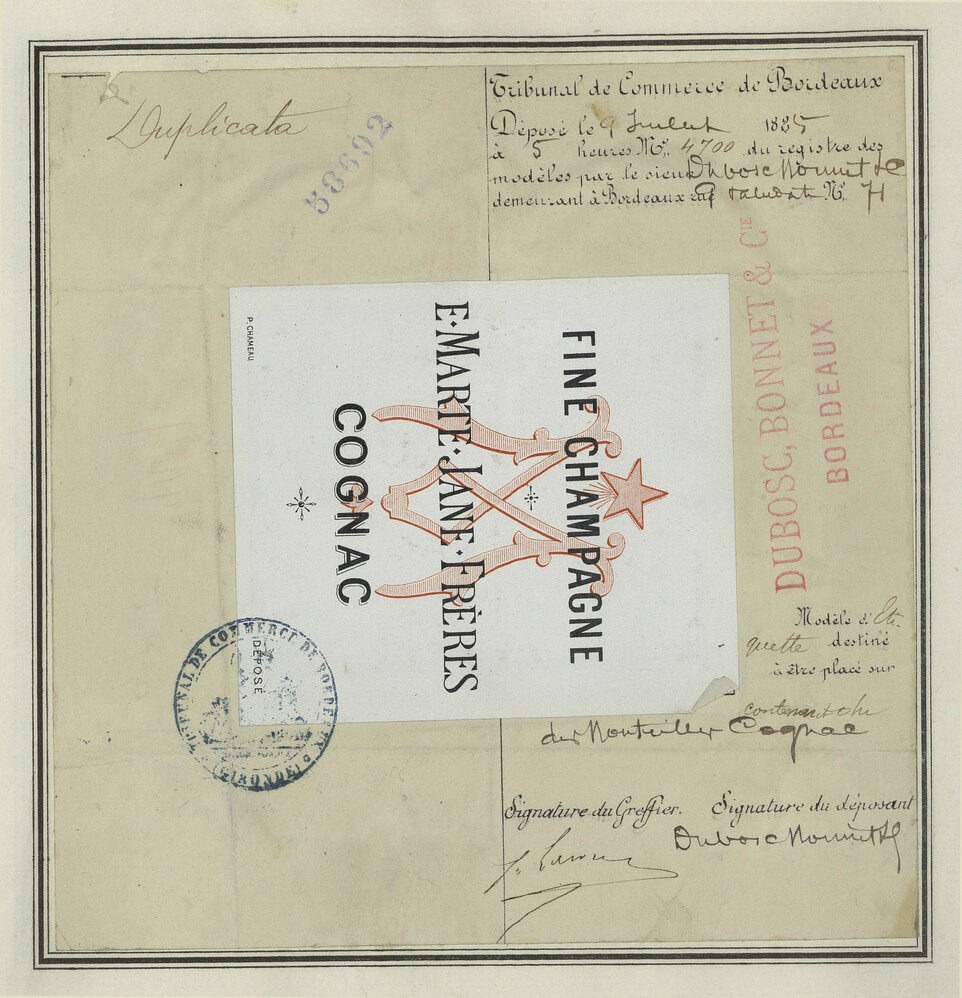 Duplicata
58692
Tribunal de Commerce de Bordeaux
Déposé le 9 Juillet 1885
à 5 heures Nº. 4700 du registre des
modèles par le sieur Dubosc Bonnet & Cie
demeurant à Bordeaux rue Nº. 71
DUBOSC, BONNET & CIE
BORDEAUX
FINE CHAMPAGNE
E·MARTE·JANE·FRÈRES
COGNAC
P. CHAMEAU
DÉPOSÉ
TRIBUNAL DE COMMERCE DE BORDEAUX
(GIRONDE)
Modèle d'Eti-
quette destiné
à être placé sur
des bouteilles contenant du
Cognac
Signature du Greffier. Signature du déposant
Dubosc Bonnet & Cie